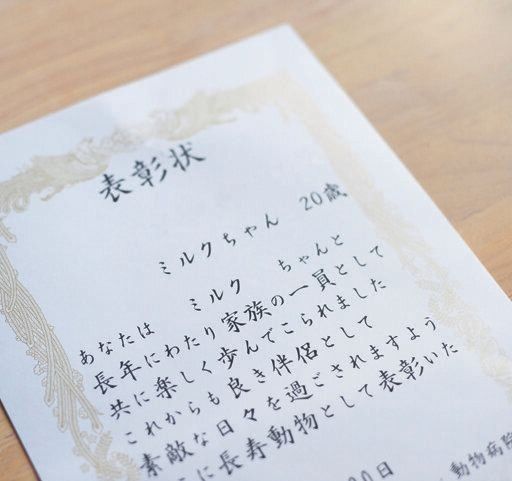 表彰状
ミルクちゃん 20歳
あなたは ミルク ちゃんと
長年にわたり家族の一員として
共に楽しく歩んでこられました
これからも良き伴侶として
素敵な日々を過ごされますよう
に長寿動物として表彰いた
00日
動物病院